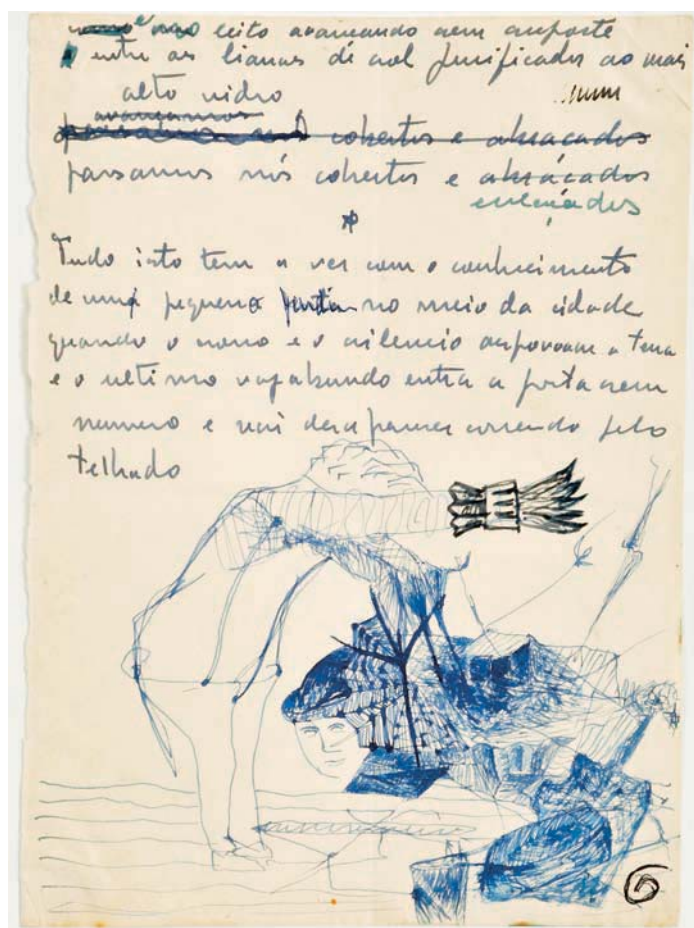 leito avançando sem suporte
entre as lianas de sol purificados ao mais
alto vidro num
avançamos
cobertos e abraçados
passamos nós cobertos e abraçados
enlaçados
Tudo isto tem a ver com o conhecimento
de uma pequena porta no meio da cidade
quando o sono e o silencio a terra
e o ultimo vagabundo entra a porta sem
numero e vai desaparecer correndo pelo
telhado